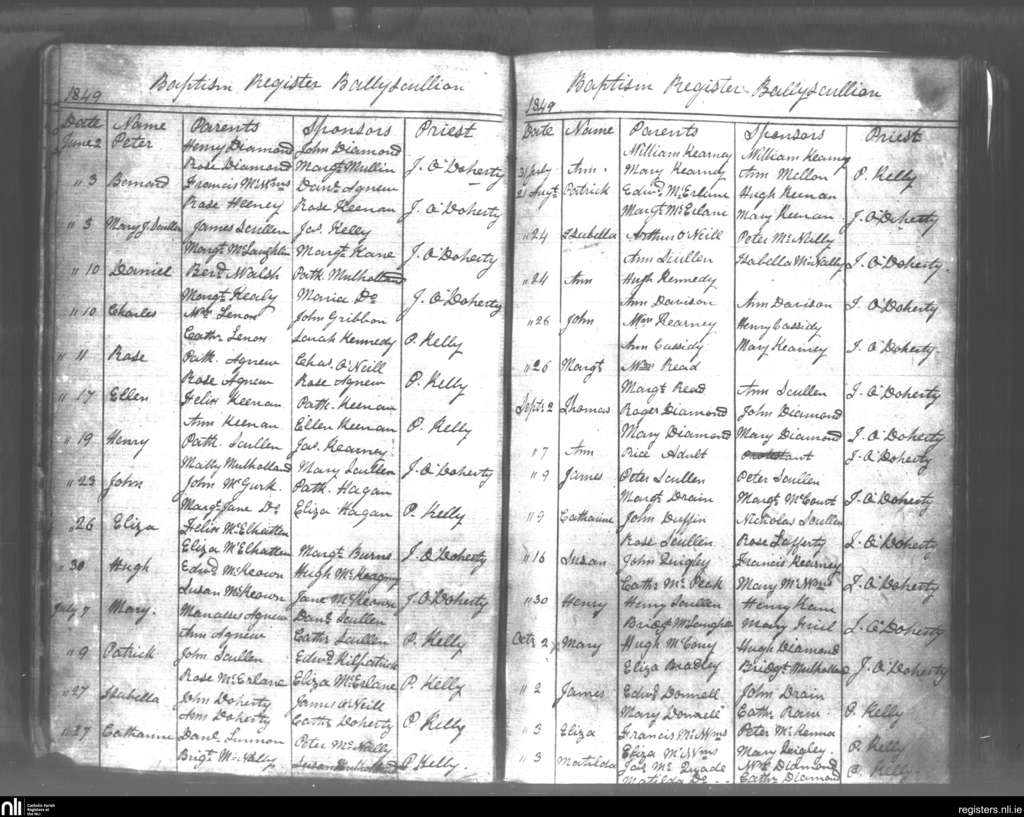 Baptism Register Ballyscullion
1849
Date Name Parents Sponsors Priest
June 2 Peter Henry Diamond John Diamond
Rose Diamond Margt. Mullin J. O'Doherty
" 3 Bernard Francis Danl. Agnew
Rose Heeney Rose Keenan J. O'Doherty
" 3 Mary J. Scullen James Scullen Jas. Kelly
Margt. McLaughlin Margt. Kane J. O'Doherty
" 10 Daniel Bernd. Walsh Patk. Mulholland
Margt. Kealy Maria Do J. O'Doherty
" 10 Charles Wm. Lenox John Gribbon
Cathr. Lenox Sarah Kennedy P. Kelly
" 11 Rose Patk. Agnew Chas. O'Neill
Rose Agnew Rose Agnew P. Kelly
" 17 Ellen Felix Keenan Patk. Keenan
Ann Keenan Ellen Keenan P. Kelly
" 19 Henry Patk. Scullen Jas. Kearney
Matty Mulholland Mary Scullen J. O'Doherty
" 23 John John McGurk Patk. Hagan
Margt. Jane Do Eliza Hagan P. Kelly
" 26 Eliza Felix McElhatten
Eliza McElhatten Margt. Burns J. O'Doherty
" 30 Hugh Edwd. McKeown Hugh
Susan McKeown Jane McKeown J. O'Doherty
July 7 Mary. Manasses Agnew Danl. Scullen
Ann Agnew Cathr. Scullen P. Kelly
" 9 Patrick John Scullen Edwd. Kilpatrick
Rose McErlane Eliza McErlane P. Kelly
" 27 Isabella John Doherty James O'Neill
Ann Doherty Cathr. Doherty P. Kelly
" 27 Catharine Danl. Peter McNally
Brigt. McNally Susan Mulholland P. Kelly.
Baptism Register Ballyscullian
1849
Date Name Parents Sponsors Priest
William Kearney William Kearney
31 July Ann Mary Kearney Ann Mellon P. Kelly
21 Augt. Patrick Edwd. McErlane Hugh Keenan
Margt. McErlane Mary Keenan J. O'Doherty
" 24 Isabella Arthur O'Neill Peter McNally
Ann Scullen Isabella McNally J. O'Doherty.
" 24 Ann Hugh Kennedy
Ann Davison Ann Davison J. O'Doherty
" 26 John Wm. Kearney Henry Cassidy
Ann Cassidy Mary Kearney J. O'Doherty.
" 26 Margt. Wm. Read
Margt. Read Ann Scullen J. O'Doherty
Septr. 2 Thomas Roger Diamond John Diamond
Mary Diamond Mary Diamond J. O'Doherty
" 7 Ann Rice Adult Protestant J. O'Doherty
" 9 James Peter Scullen Peter Scullen
Margt. Drain Margt. McCourt J. O'Doherty
" 9 Catharine John Duffin Nicholas Scullen
Rose Scullen Rose Lafferty J. O'Doherty
" 16 Susan John Quigley Francis Kearney
Cathr. McPeck Mary J. O'Doherty
" 30 Henry Henry Scullen Henry Kane
Bridgt. McLaughlin Mary Friel J. O'Doherty
Octr. 2 Mary Hugh McCony Hugh Diamond
Eliza Bradley Bridgt. Mulholland J. O'Doherty
" 2 James Edwd. Donnell John Drain
Mary Donnell Cathr. P. Kelly
" 3 Eliza Francis Peter McKenna
Eliza Mary Quigley. P. Kelly
" 3 Matilda Jas. McQuade Wm. Diamond
Matilda Do Cathr. Diamond P. Kelly.
nli Catholic Parish Registers at the NLI
registers.nli.ie